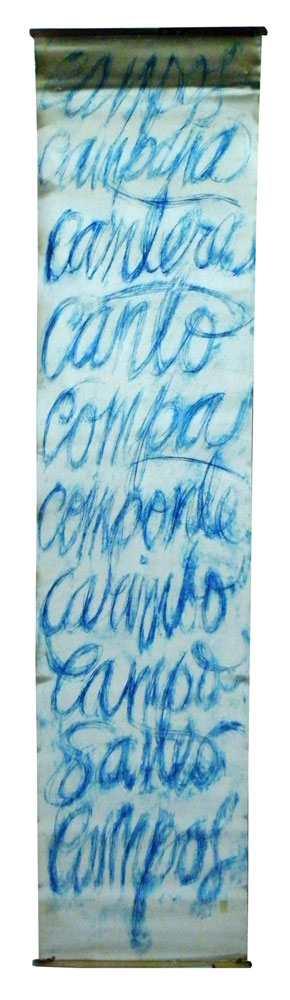 campos
campana
canteras
canto
compas
componte
carimbo
campo
santo
campos